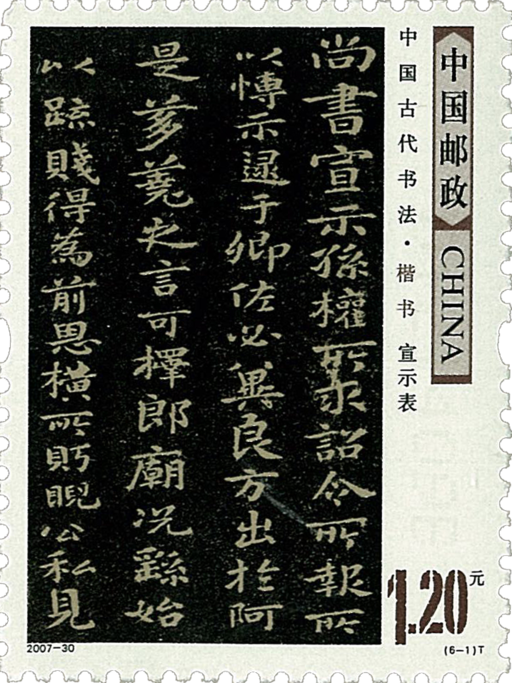 中国邮政 CHINA
中国古代书法·楷书 宣示表
尚書宣示孫權所求詔令所報所
以慱示逮于卿佐必冀良方出於阿
是芻蕘夫言可擇郎廟況繇始
以疏賤得為前恩橫所眄睨公私見
1.20元
2007-30
(6-1)T